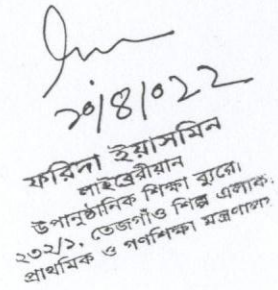 ২০/৪/০২২
ফরিদা ইয়াসমিন
লাইব্রেরীয়ান
উপানুষ্ঠানিক শিক্ষা ব্যুরো
২৩২/১, তেজগাঁও শিল্প এলাকা
প্রাথমিক ও গণশিক্ষা মন্ত্রণালয়